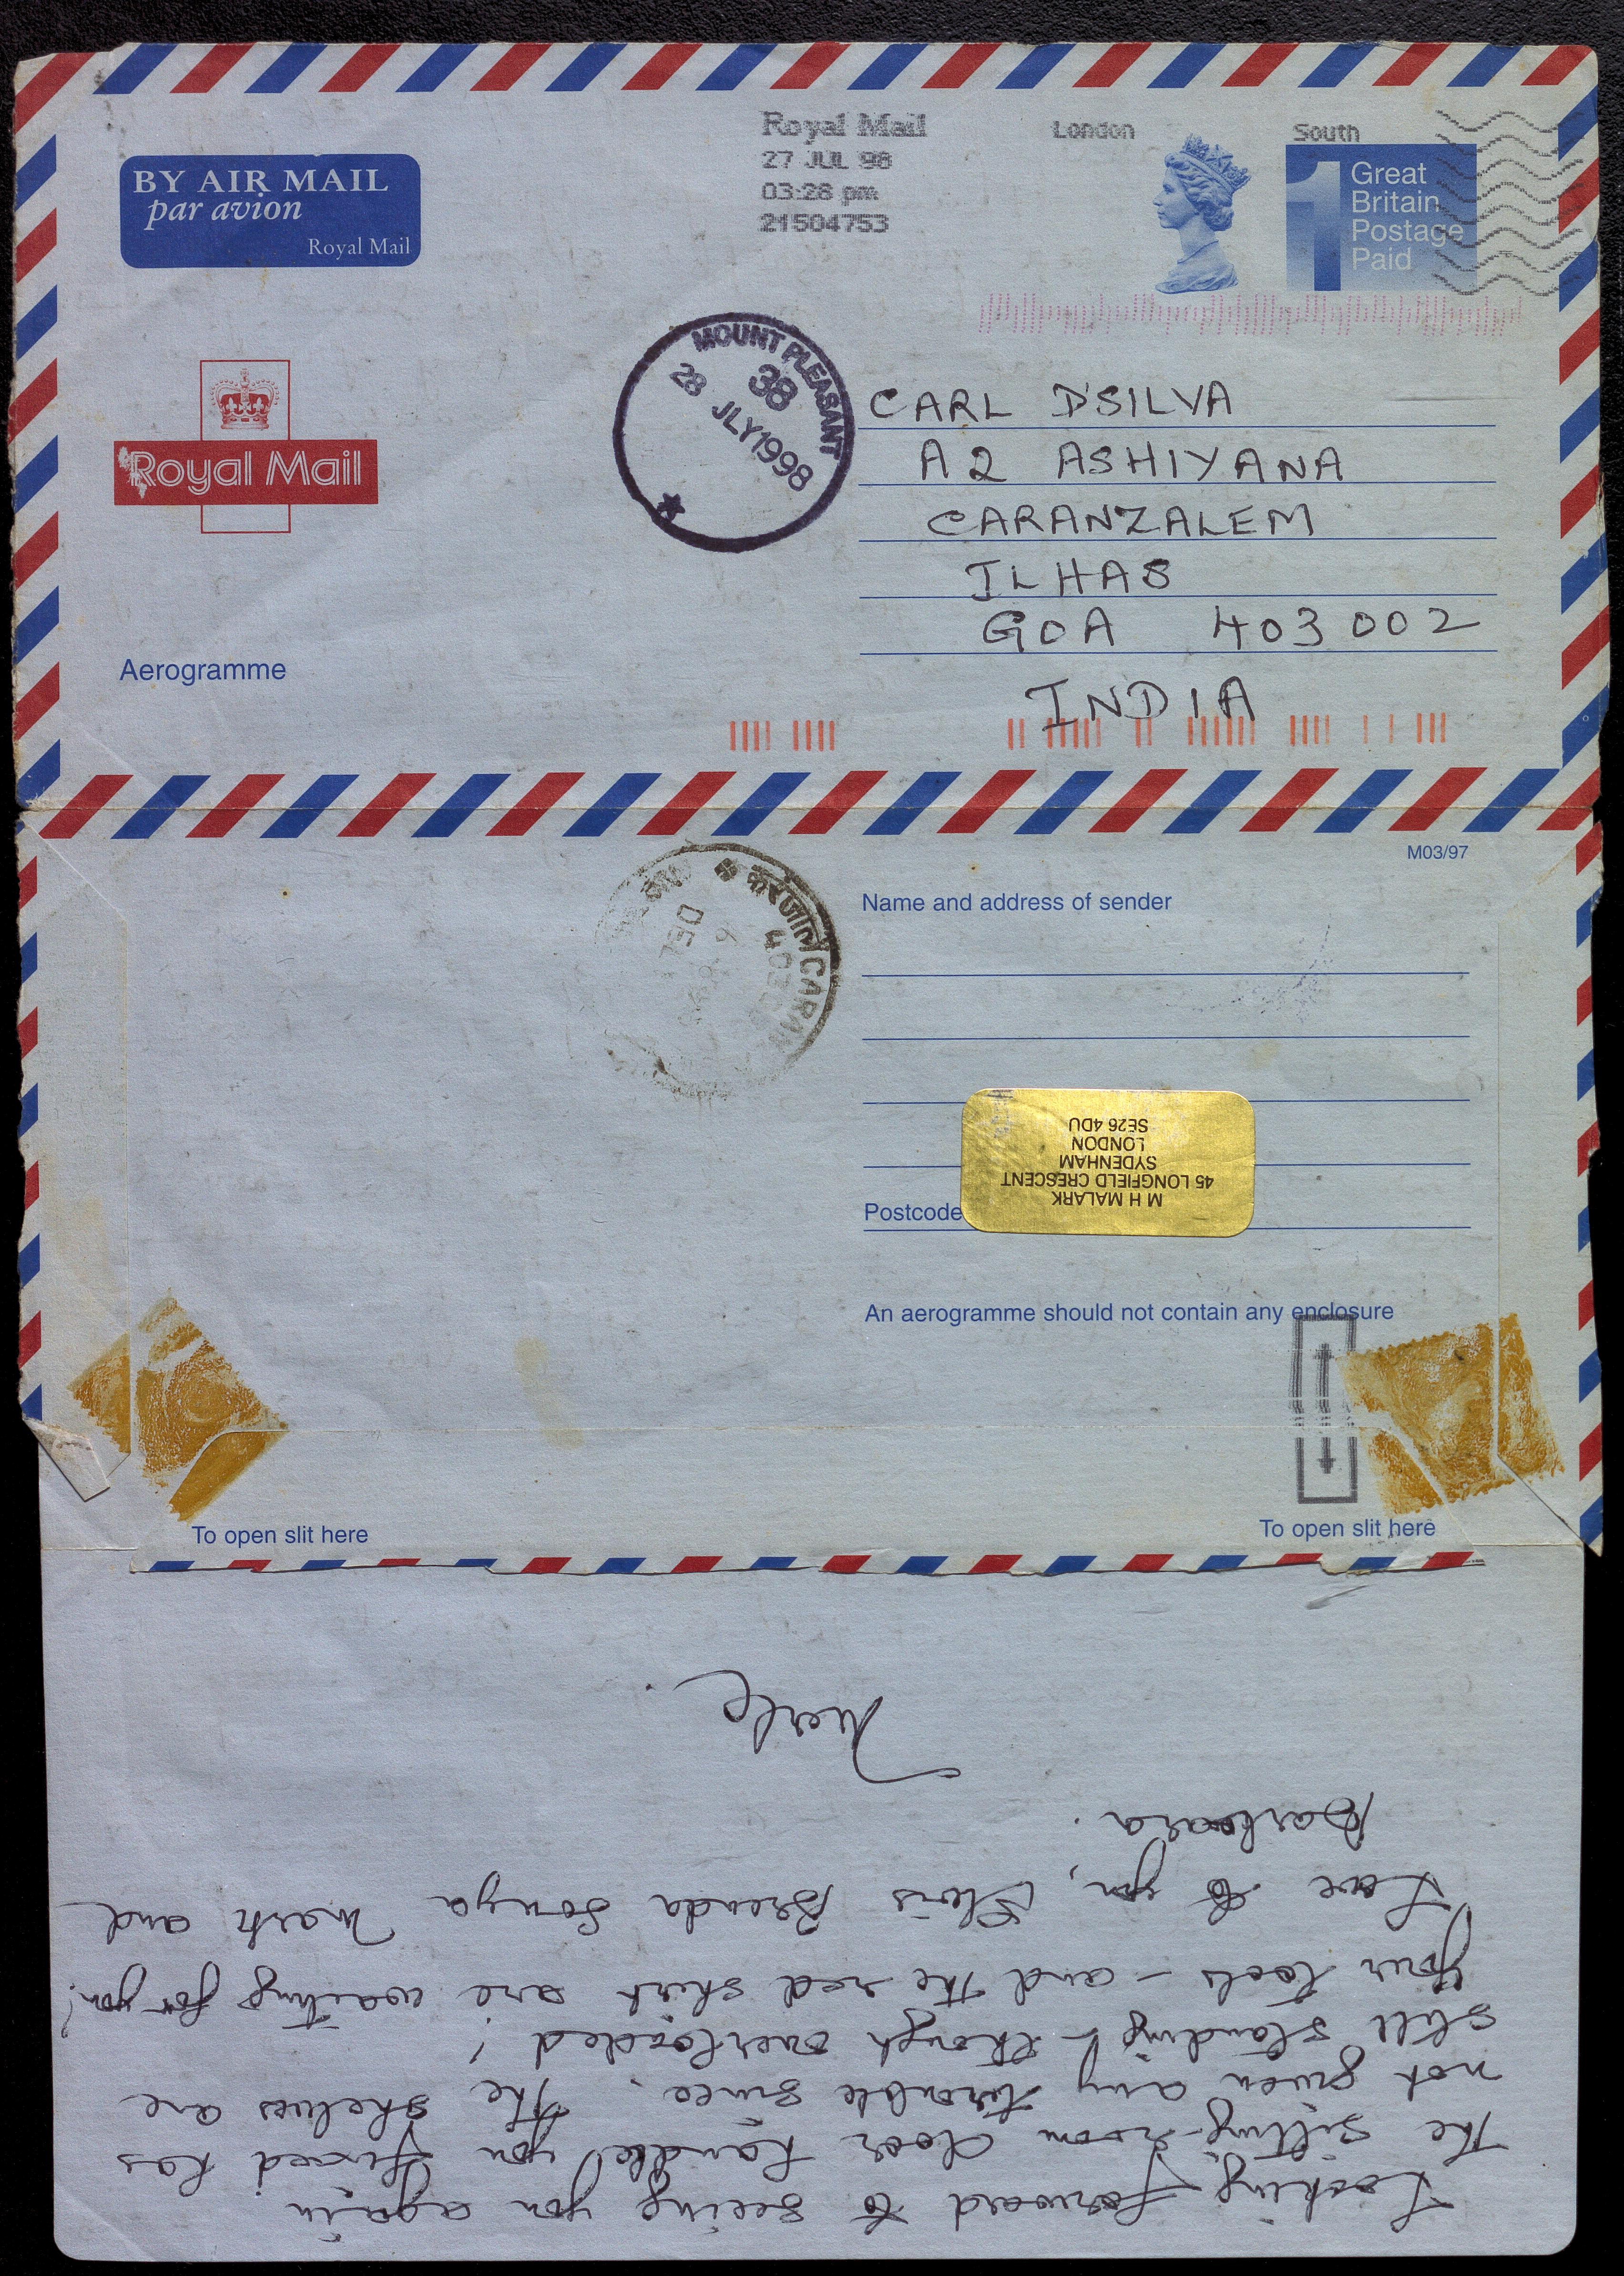 BY AIR MAIL
par avion
Royal Mail
Royal Mail
27 JUL 98
03:28 pm
21504753
London
South
1
Great
Britain
Postage
Paid
Royal Mail
MOUNT PLEASANT
38
28 JLY 1998
CARL D'SILVA
A2 ASHIYANA
CARANZALEM
ILHAS
GOA 403 002
INDIA
Aerogramme
M03/97
Name and address of sender
DEL
M H MALARK
45 LONGFIELD CRESCENT
SYDENHAM
LONDON
SE26 4DU
Postcode
An aerogramme should not contain any enclosure
To open slit here
To open slit here
Looking forward to seeing you again
The sitting-room door handle you fixed has
not given any trouble since. The shelves are
still standing - though overloaded!
Your tools - and the red shirt are waiting for you!
Love to you, Elvis Brenda Sonya Mark and
Barbara.
Merle.